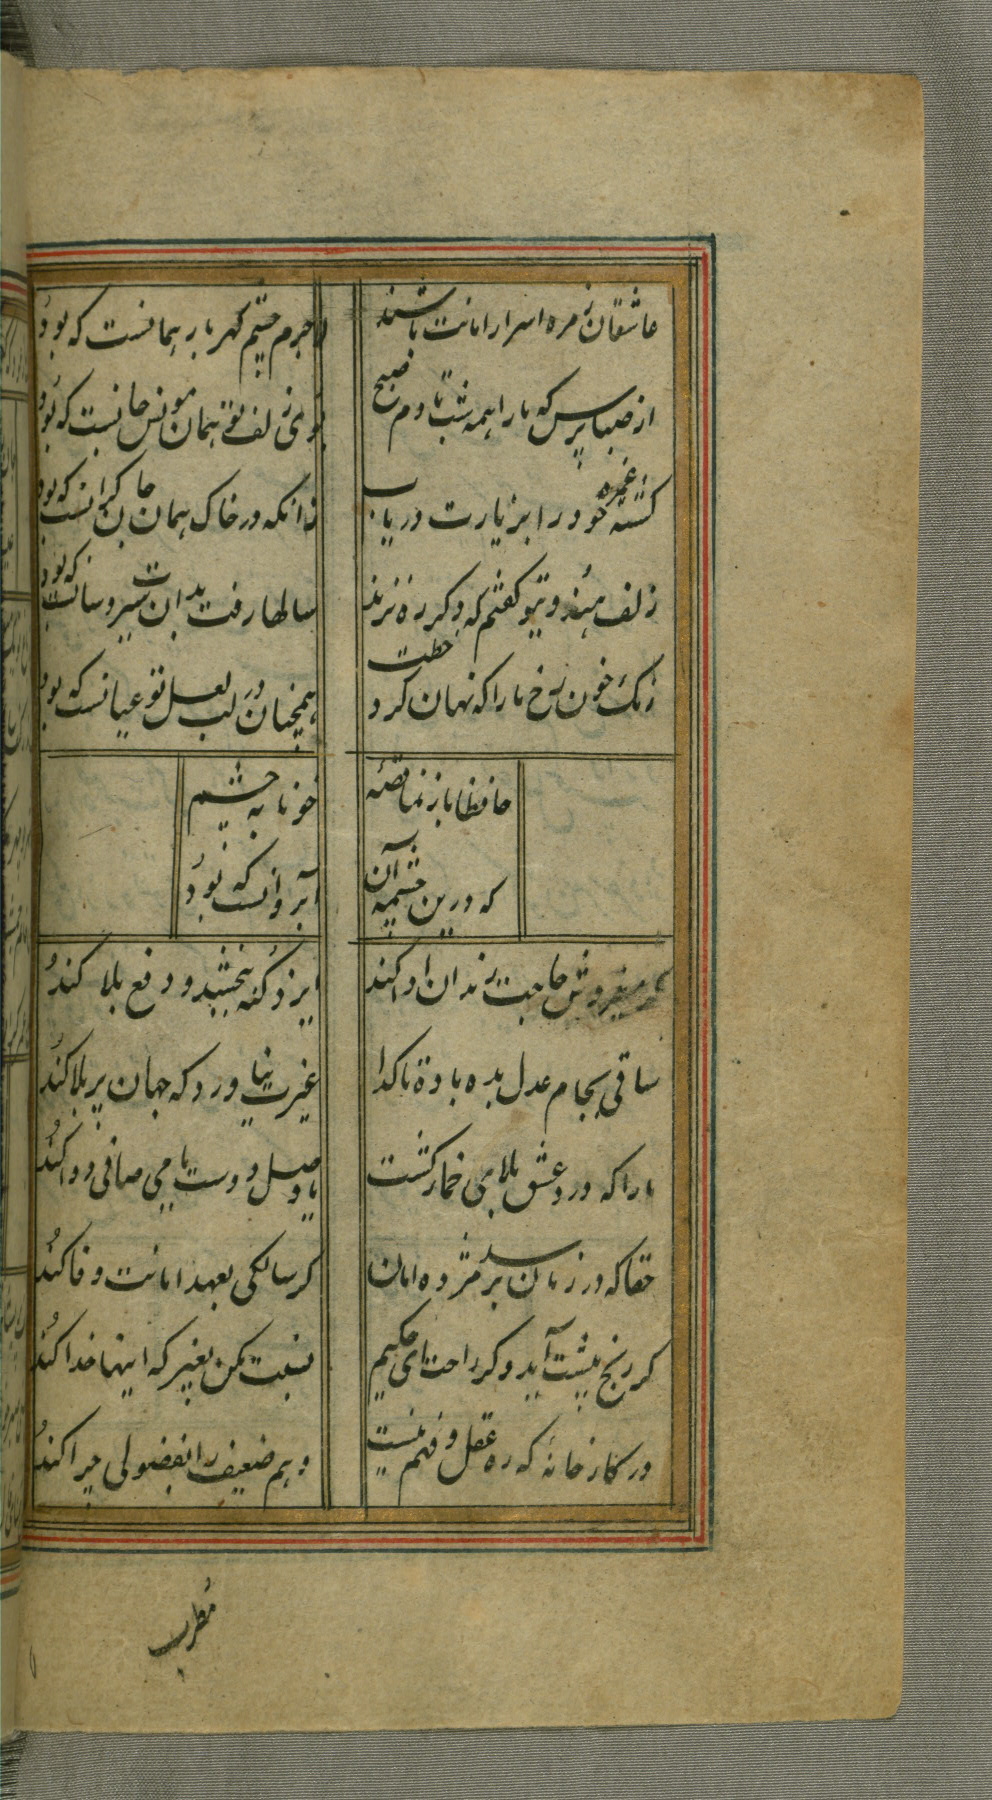 عاشقان زمره اسرار امانت باشند
لاجرم چشم گهربار همانست که بود
از صبا پرس که ما را همه شب تا دم صبح
بوی زلف تو همان مونس جانست که بود
کشته غمزه خود را بزیارت دریاب
زانکه در خاک همان نگرانست که بود
زلف هندوی تو گفتم که دگر ره نزند
سالها رفت بدان سیرت و سانست که بود
رنک خون رخ ما را که نهان کرد خطت
همچنان در لب لعل تو عیانست که بود
حافظا باز نما قصّهٔ
خونابه چشم
که درین چشمه آن
آب روانست که بود
میفروش حاجت رندان روا کند
ایزد کنه ببخشد و دفع بلا کند
ساقی بجام عدل بده باده تا کدا
غیرت نیاورد که جهان پر بلا کند
ما را که درد عشق بلای خمار کشت
یا وصل دوست یا می صافی دوا کند
حقا که در زمان برسد مژده امان
کر سالکی بعهد امانت وفا کند
کر رنج پیشت آید و کر راحت ای حکیم
نسبت مکن بغیر که اینها خدا کند
در کارخانهٔ که ره عقل و فهم نیست
وهم ضعیف را بفضولی چرا کند
مطرب